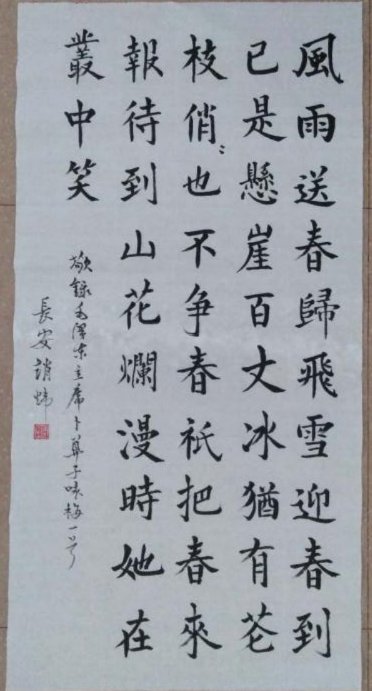 風雨送春歸飛雪迎春到
已是懸崖百丈冰猶有花
枝俏〻也不争春衹把春來
報待到山花爛漫時她在
叢中笑
敬錄毛澤东主席卜算子咏梅一首
長安